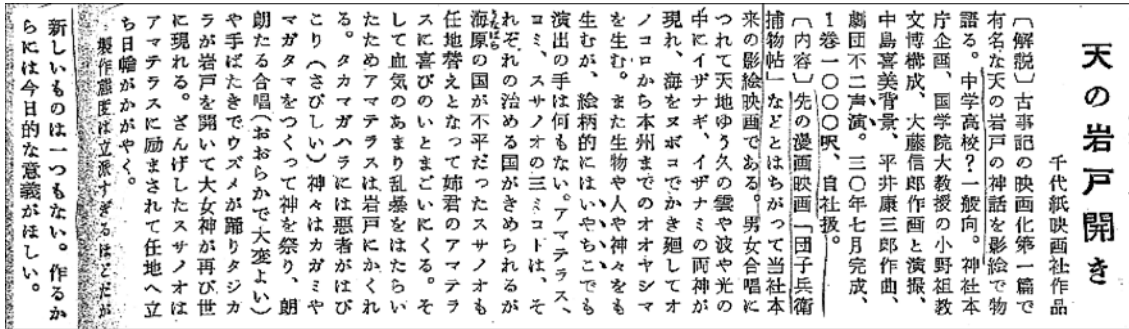 天の岩戸開き
千代紙映画社作品
〔解説〕古事記の映画化第一篇で
有名な天の岩戸の神話を影絵で物
語る。中学高校？一般向。神社本
庁企画、国学院大教授の小野祖教
文博構成、大藤信郎作画と演撮、
中島喜美背景、平井康三郎作曲、
劇団不二声演。三〇年七月完成、
1巻一〇〇〇呎、自社扱。
〔内容〕先の漫画映画「団子兵衛
捕物帖」などとはちがって当社本
来の影絵映画である。男女合唱に
つれて天地ゆう久の雲や波や光の
中にイザナギ、イザナミの両神が
現れ、海をヌボコでかき廻してオ
ノコロから本州までのオオヤシマ
を生む。また生物や人や神々をも
生むが、絵柄的にはいやちこでも
演出の手は何もない。アマテラス、
コミ、スサノオの三ミコトは、そ
れぞれの治める国がきめられるが
海原の国が不平だったスサノオも
うなばら
任地替えとなって姉君のアマテラ
スに喜びのいとまごいにくる。そ
して血気のあまり乱暴をはたらい
たためアマテラスは岩戸にかくれ
る。タカマガハラには悪者がはび
こり（さびしい）神々はカガミや
マガタマをつくって神を祭り、朗
朗たる合唱（おおらかで大変よい）
や手ばたきでウズメが踊りタジカ
ラが岩戸を開いて大女神が再び世
に現れる。ざんげしたスサノオは
アマテラスに励まされて任地へ立
ち日輪がかがやく。
製作態度は立派すぎるほどだが
新しいものは一つもない。作るか
らには今日的な意義がほしい。